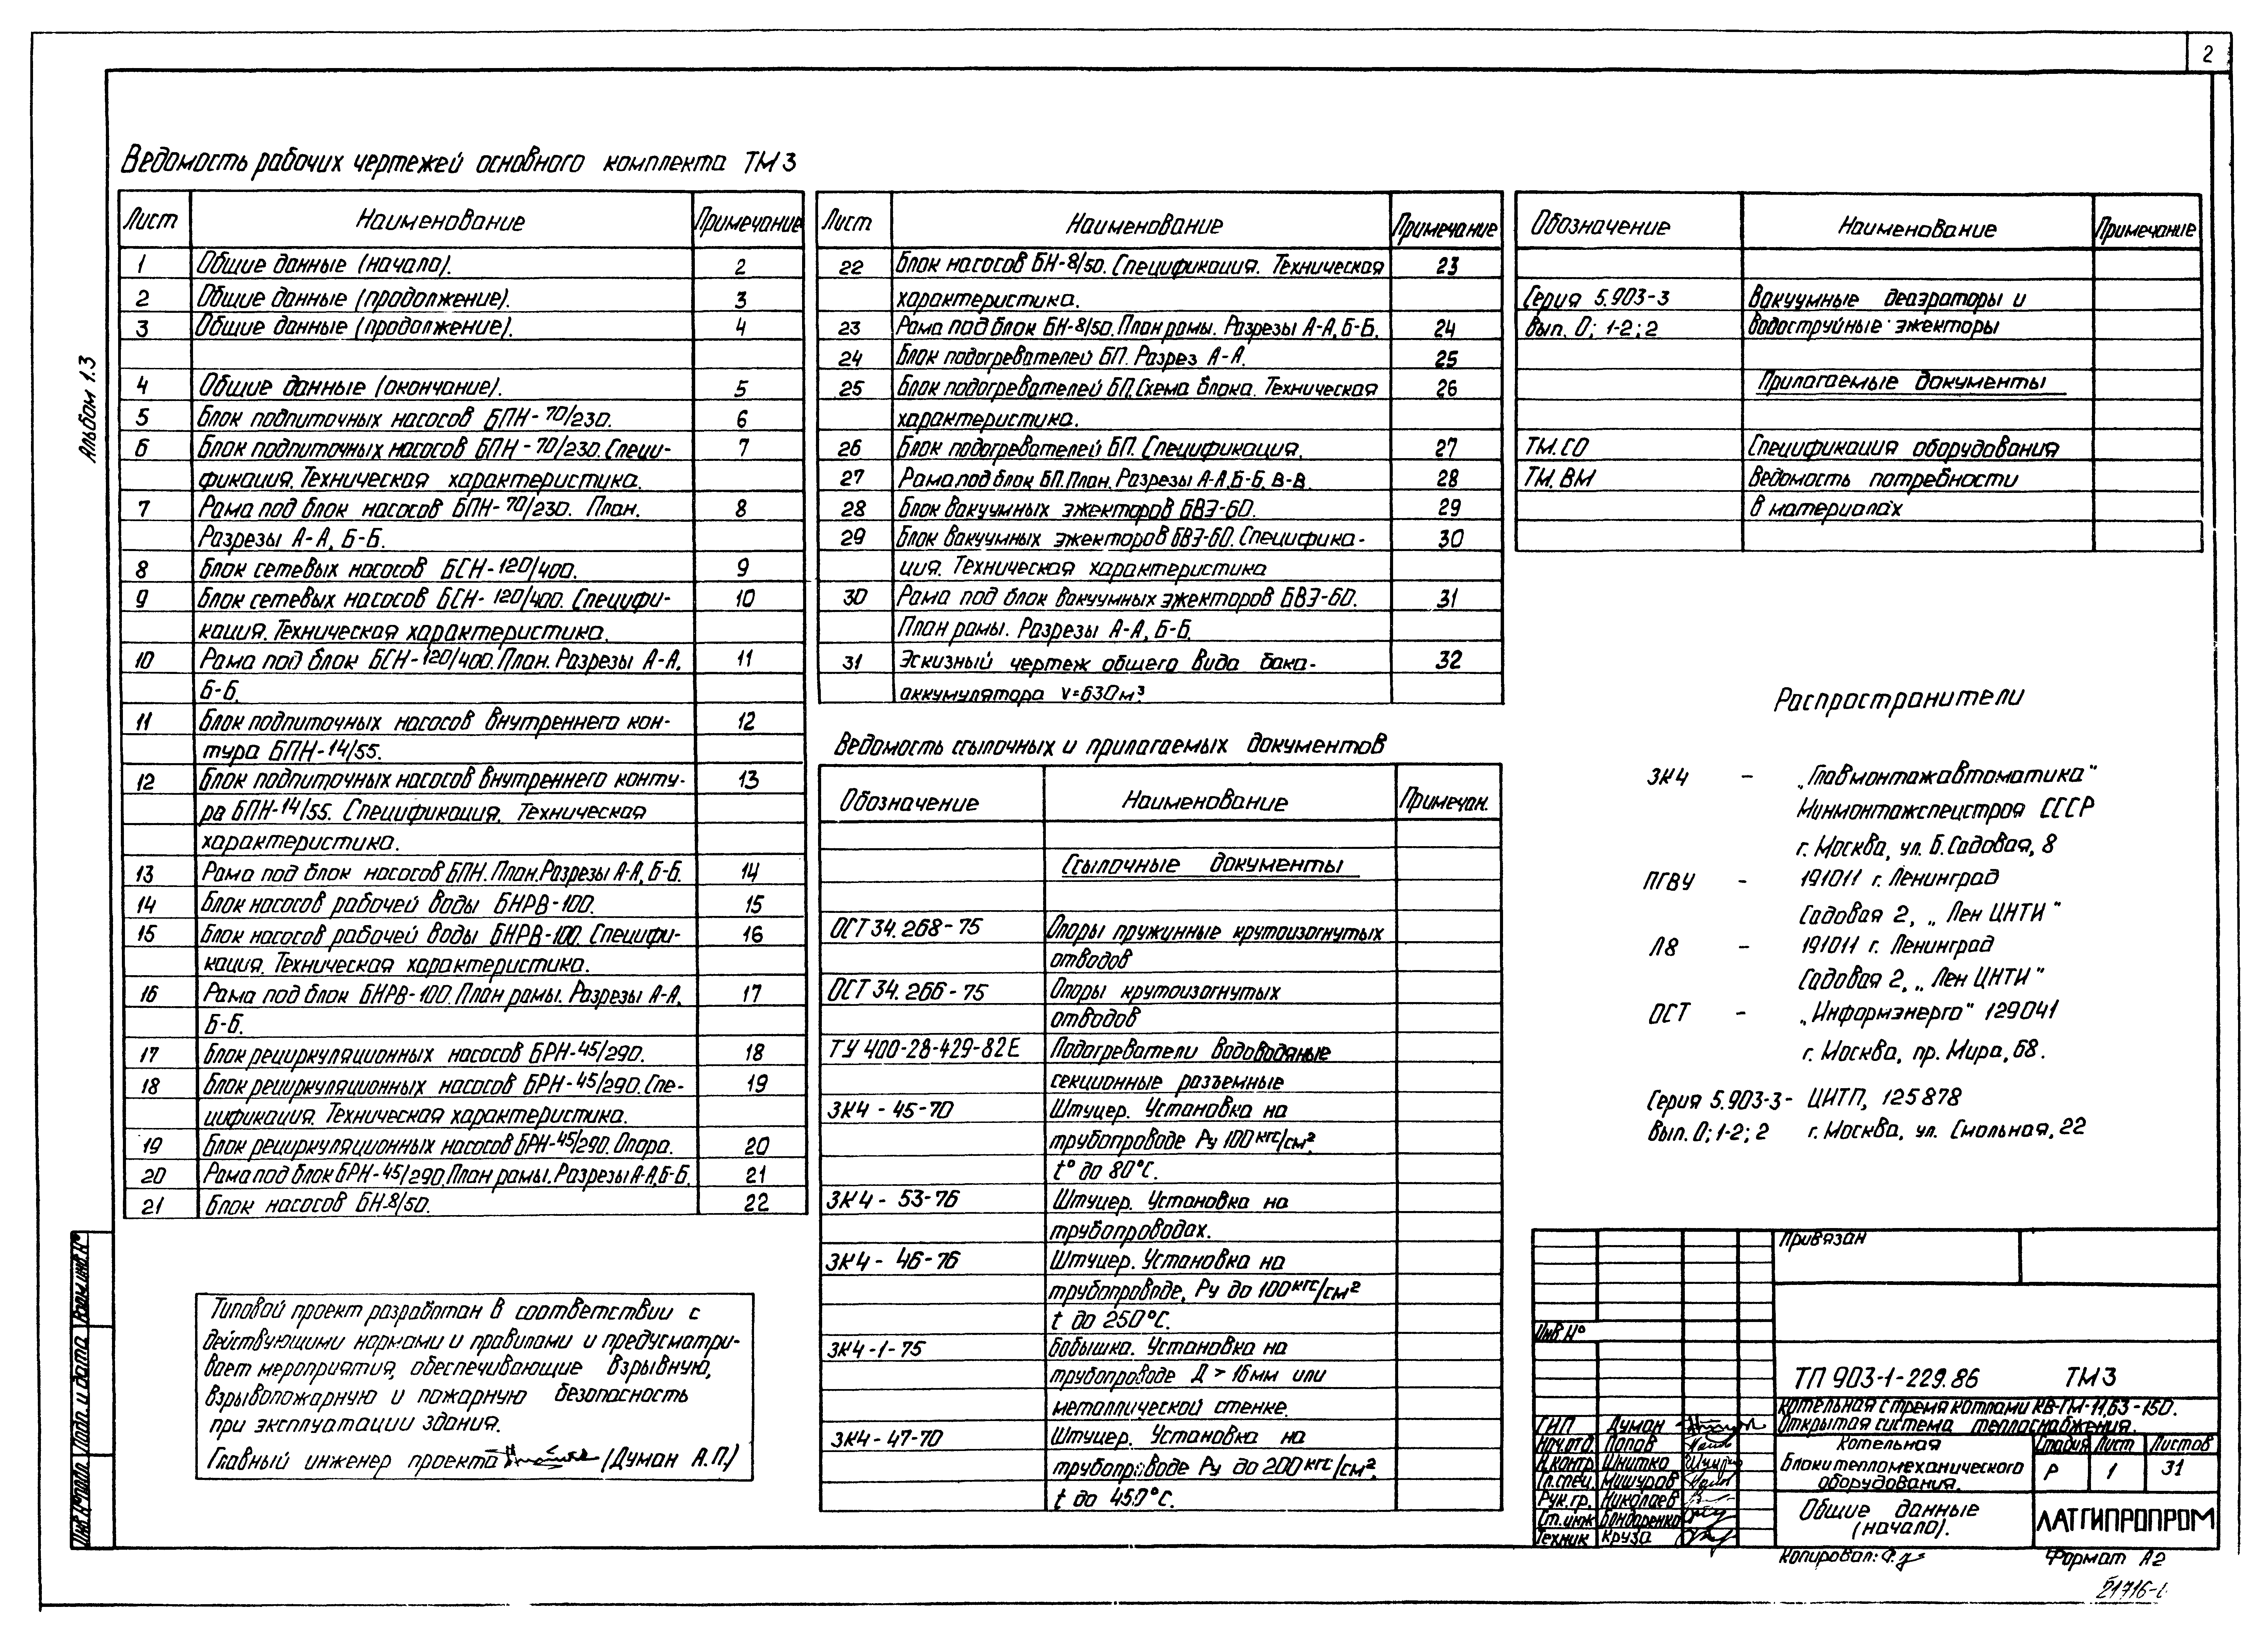 2
Альбом 1.3
Ведомость рабочих чертежей основного комплекта ТМ3
Лист Наименование Примечание
1 Общие данные (начало). 2
2 Общие данные (продолжение). 3
3 Общие данные (продолжение). 4
4 Общие данные (окончание). 5
5 Блок подпиточных насосов БПН-70/230. 6
6 Блок подпиточных насосов БПН-70/230. Специ- 7
фикация. Техническая характеристика.
7 Рама под блок насосов БПН-70/230. План. 8
Разрезы А-А, Б-Б.
8 Блок сетевых насосов БСН-120/400. 9
9 Блок сетевых насосов БСН-120/400. Специфи- 10
кация. Техническая характеристика.
10 Рама под блок БСН-120/400. План. Разрезы А-А, 11
Б-Б.
11 Блок подпиточных насосов внутреннего кон- 12
тура БПН-14/55.
12 Блок подпиточных насосов внутреннего конту- 13
ра БПН-14/55. Спецификация. Техническая
характеристика.
13 Рама под блок насосов БПН. План. Разрезы А-А, Б-Б. 14
14 Блок насосов рабочей воды БНРВ-100. 15
15 Блок насосов рабочей воды БНРВ-100. Специфи- 16
кация. Техническая характеристика.
16 Рама под блок БНРВ-100. План рамы. Разрезы А-А, 17
Б-Б.
17 Блок рециркуляционных насосов БРН-45/290. 18
18 Блок рециркуляционных насосов БРН-45/290. Спе- 19
цификация. Техническая характеристика.
19 Блок рециркуляционных насосов БРН-45/290. Опора. 20
20 Рама под блок БРН-45/290. План рамы. Разрезы А-А, Б-Б. 21
21 Блок насосов БН-8/50. 22
Лист Наименование Примечание
22 Блок насосов БН-8/50. Спецификация. Техническая 23
характеристика.
23 Рама под блок БН-8/50. План рамы. Разрезы А-А, Б-Б. 24
24 Блок подогревателей БП. Разрез А-А. 25
25 Блок подогревателей БП. Схема блока. Техническая 26
характеристика.
26 Блок подогревателей БП. Спецификация. 27
27 Рама под блок БП. План. Разрезы А-А, Б-Б, В-В. 28
28 Блок вакуумных эжекторов БВЭ-60. 29
29 Блок вакуумных эжекторов БВЭ-60. Специфика- 30
ция. Техническая характеристика
30 Рама под блок вакуумных эжекторов БВЭ-60. 31
План рамы. Разрезы А-А, Б-Б.
31 Эскизный чертеж общего вида бака- 32
аккумулятора V=630м³.
Ведомость ссылочных и прилагаемых документов
Обозначение Наименование Примечан.
Ссылочные документы
ОСТ 34.268-75 Опоры пружинные крутоизогнутых
отводов
ОСТ 34.266-75 Опоры крутоизогнутых
отводов
ТУ 400-28-429-82Е Подогреватели водоводяные
секционные разъемные
ЗК4-45-70 Штуцер. Установка на
трубопроводе Ру 100 кгс/см²,
t° до 80°С.
ЗК4-53-76 Штуцер. Установка на
трубопроводах.
ЗК4-46-76 Штуцер. Установка на
трубопроводе, Ру до 100 кгс/см²
t до 250°С.
ЗК4-1-75 Бобышка. Установка на
трубопроводе Д > 16мм или
металлической стенке.
ЗК4-47-70 Штуцер. Установка на
трубопроводе Ру до 200 кгс/см²,
t до 450°С.
Обозначение Наименование Примечание
Серия 5.903-3 Вакуумные деаэраторы и
Вып. 0; 1-2; 2 водоструйные эжекторы
Прилагаемые документы
ТМ.СО Спецификация оборудования
ТМ.ВМ Ведомость потребности
в материалах
Распространители
ЗК4 - „Главмонтажавтоматика"
Минмонтажспецстроя СССР
г. Москва, ул. Б. Садовая, 8
ПГВУ - 191011 г. Ленинград
Садовая 2, „Лен ЦНТИ"
Л8 - 191011 г. Ленинград
Садовая 2, „Лен ЦНТИ"
ОСТ - „Информэнерго" 129041
г. Москва, пр. Мира, 68.
Серия 5.903-3- ЦИТП, 125878
Вып. 0; 1-2; 2 г. Москва, ул. Смольная, 22
Типовой проект разработан в соответствии с
действующими нормами и правилами и предусматри-
вает мероприятия, обеспечивающие взрывную,
взрывопожарную и пожарную безопасность
при эксплуатации здания.
Главный инженер проекта (Думан А.П.)
Взам. инв. №
Подп. и дата
Инв. № подл.
Привязан
Инв. №
ТП 903-1-229.86 ТМ3
Котельная с тремя котлами КВ-ГМ-11,63-150.
Открытая система теплоснабжения.
ГИП Думан
Нач. отд. Попов
Н. контр. Шнитко
Гл. спец. Мишуров
Рук. гр. Николаев
Ст. инж. Бондаренко
Техник Круза
Котельная
Блоки тепломеханического
оборудования.
Стадия Лист Листов
Р 1 31
Общие данные
(начало).
ЛАТГИПРОПРОМ
Копировал:
Формат А2